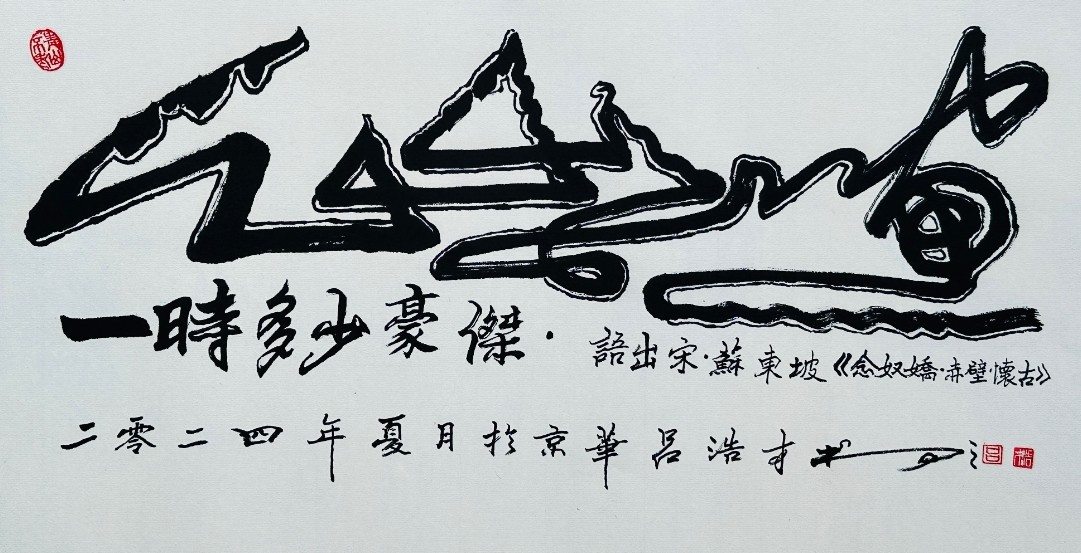 江山如畫
一時多少豪傑·語出宋·蘇東坡《念奴嬌·赤壁·懷古》
二零二四年夏月於京華呂浩才书之